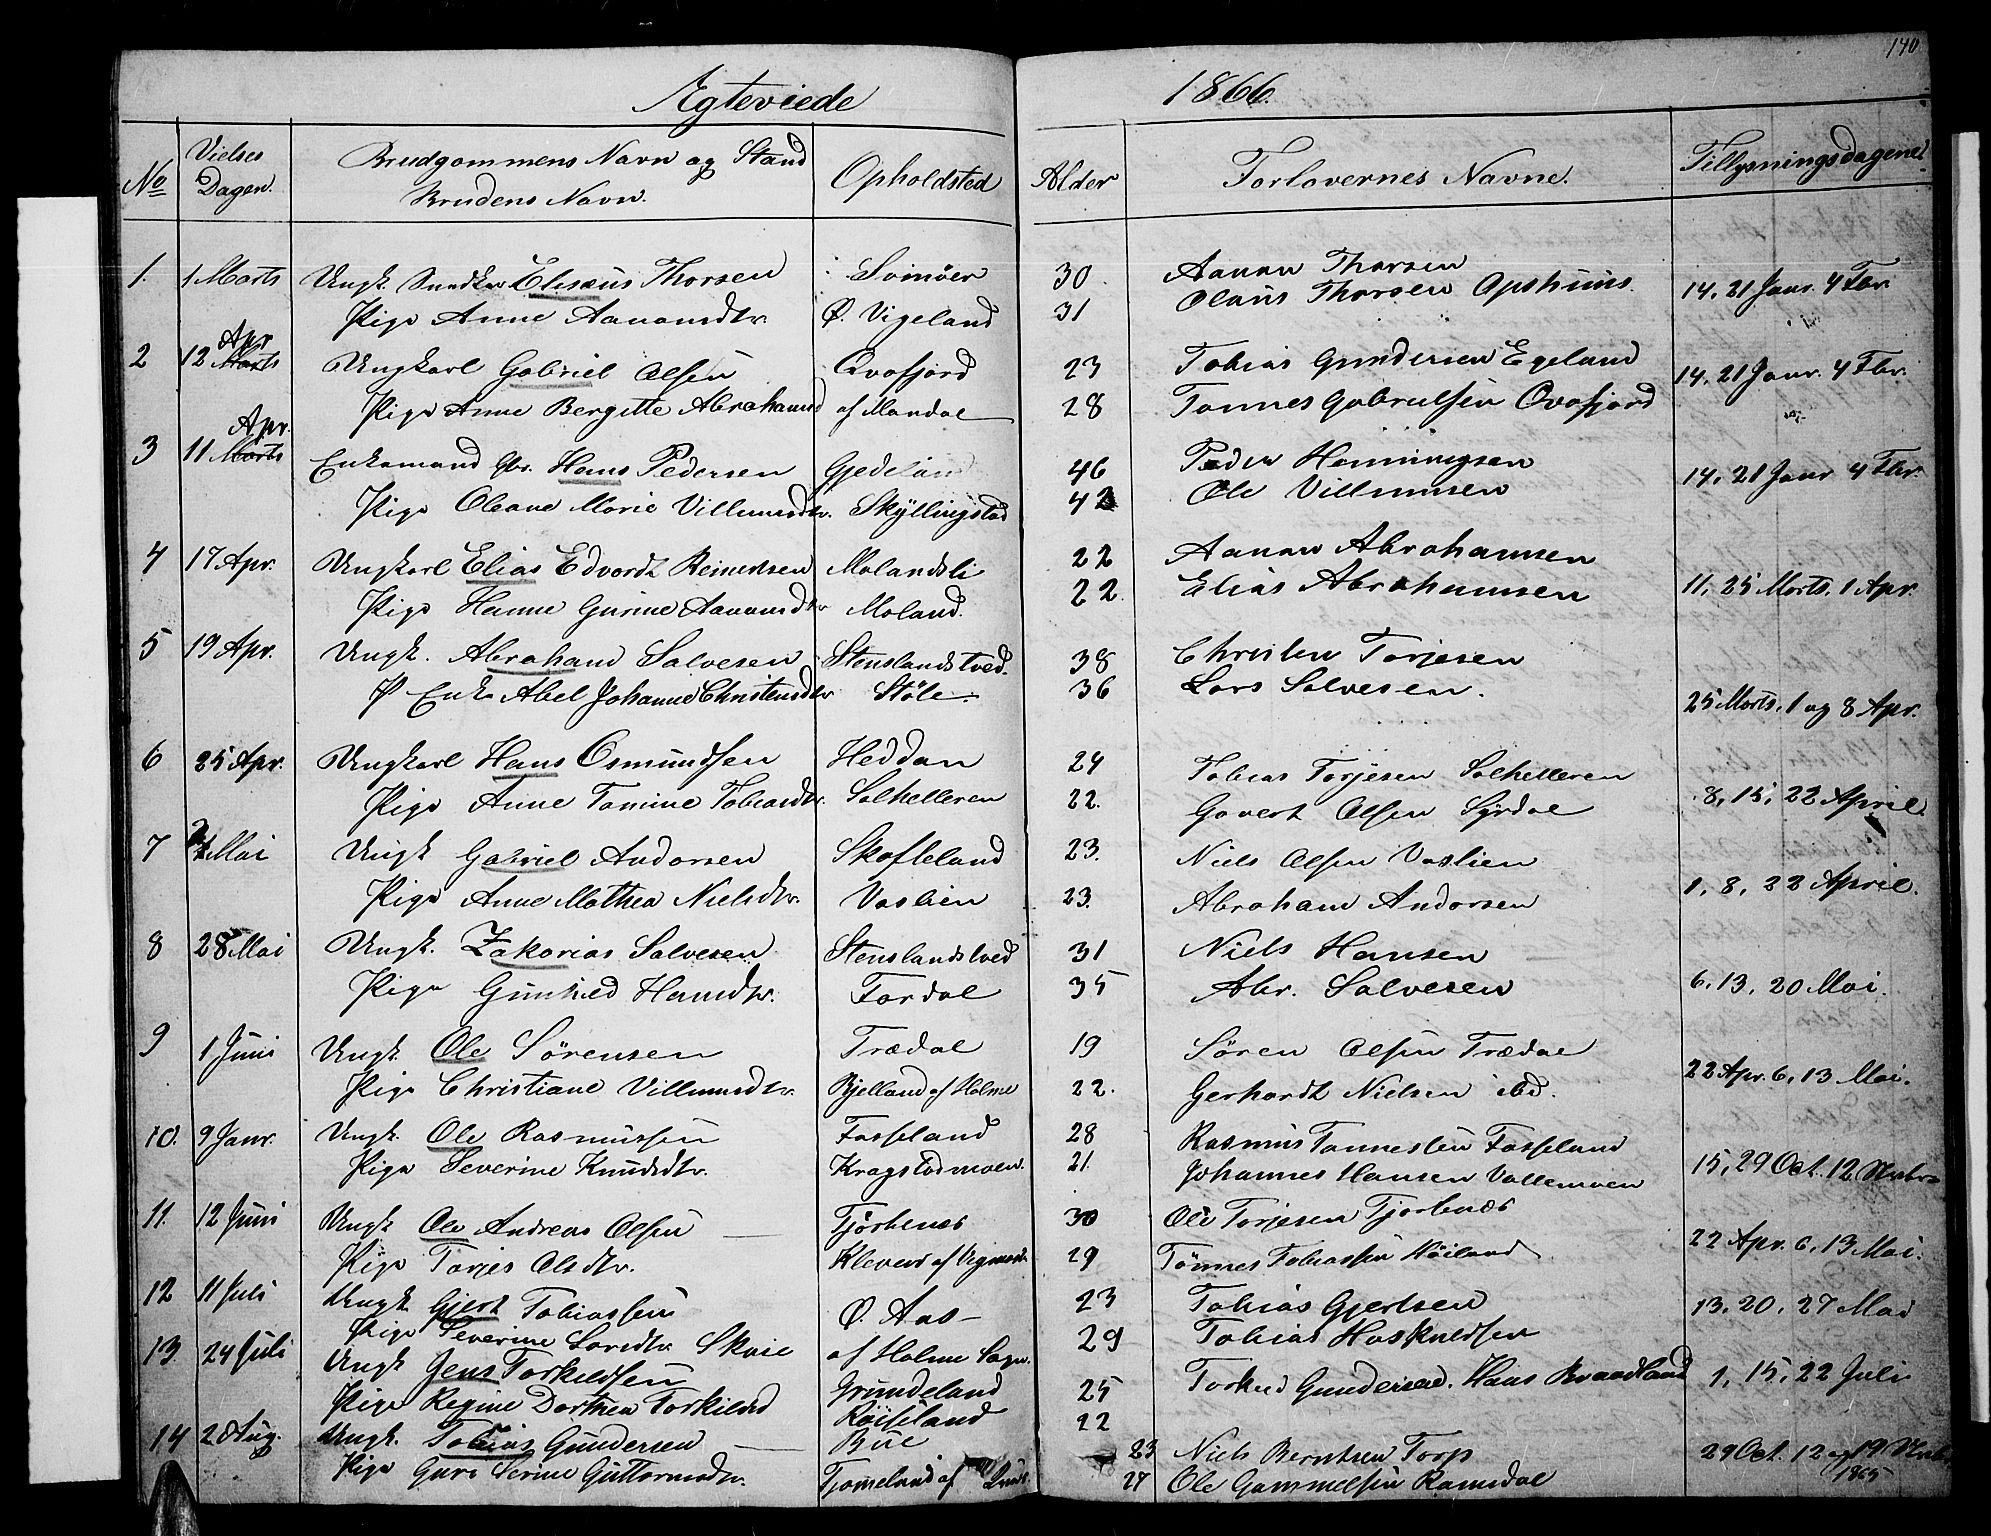 140
Ægteviede 1866.
No Vielses Dagen. Brudgommens Navn og Stand Brudens Navn. Opholdsted Alder Forlovernes Navne. Tillysningsdagene.
1. 1 Marts Ungk. Elisæus Thorsen Svinøer 30 Aanen Thorsen 14, 21 Janr. 4 Fbr.
Pige Anne Aanensdtr. Ø. Vigeland 31 Olaus Thorsen Opshuus.
2 12 Marts Apr Ungkarl Gabriel Olsen Ovafjord 23 Tobias Gundersen Egeland 14, 21 Janr. 4 Fbr.
Pige Anne Bergitte Abrahamsd af Mandal 28 Tønnes Gabrielsen Ovafjord
3 11 Marts Apr. Enkemand Gbr. Hans Pedersen Gjedeland 46 Peder Henningsen 14, 21 Janr 4 Fbr.
Pige Oleane Marie Villumsdtr. Skyllingstad 42 Ole Villumsen
4 17 Apr. Ungkarl Elias Edvardt Reinertsen Molandsli 22 Aanen Abrahamsen 11, 25 Marts, 1 Apr.
Pige Hanne Gurine Aanensdtr Moland. 22. Elias Abrahamsen
5 19 Apr. Ungk. Abraham Salvesen Stenslandstved. 38 Christen Torjesen 25 Marts, 1 og 8 Apr.
P Enke Abel Johanne Christensdtr Støle. 36 Lars Salvesen.
6 25 Apr. Ungkarl Hans Osmundsen Heddan 24 Tobias Torjesen Salhelleren 8, 15, 22 April.
Pige Anne Tomine Tobiasdtr. Salhelleren 22. Govert Olsen Syrdal
7 Mai Ungk Gabriel Andersen Skofteland 23. Niels Olsen Vaslien 1, 8, 22 April.
Pige Anne Mathea Nielsdtr. Vaslien 23. Abraham Andersen
8 28 Mai Ungk. Zakarias Salvesen Stenslandstved 31 Niels Hansen 6, 13, 20 Mai.
Pige Gunhild Hansdtr. Fardal 35 Abr. Salvesen
9 1 Juni Ungk. Ole Sörensen Trædal 19 Sören Olsen Trædal 22 Apr. 6, 13 Mai.
Pige Christiane Villumsdtr. Bjelland af Holme 22. Gerhardt Nielsen ibd.
10. 9 Janr. Ungk. Ole Rasmussen Fasseland 28 Rasmus Tønnessen Fasseland 15, 29 Oct. 12 Nvbr
Pige Severine Knudsdtr. Kragstadmoen. 21. Johannes Hansen Vallemoen
11. 12 Juni Ungk Ole Andreas Olsen Tjørbenæs 30 Ole Torjesen Tjorbenæs 22 Apr. 6, 13 Mai.
Pige Torjes Olsdtr. Kleven af Vigmost. 29 Tönnes Tobiassen Høiland
12 11 Juli Ungk Gjert Tobiassen Ø. Aas 23 Tobias Gjertsen 13, 20, 27 Mai
Pige Severine Skaie af Holme Sogn. 29 Tobias Haskuldsen
13 24 Juli Ungk Jens Torkildsen Grundeland 25 Torkild Gundersen. Hans Brandland 1, 15, 22 Juli
Pige Regine Dorthea Torkildsd Røiseland 22
14 2 Aug. Ungk. Tobias Gundersen Bue 23 Niels Berntsen Torp 29 Oct. 12 og 19 Nvbr. 1865
Pige Guro Serine Guttormsdtr. Tjomeland af 27 Ole Gammelsen Ramsdal